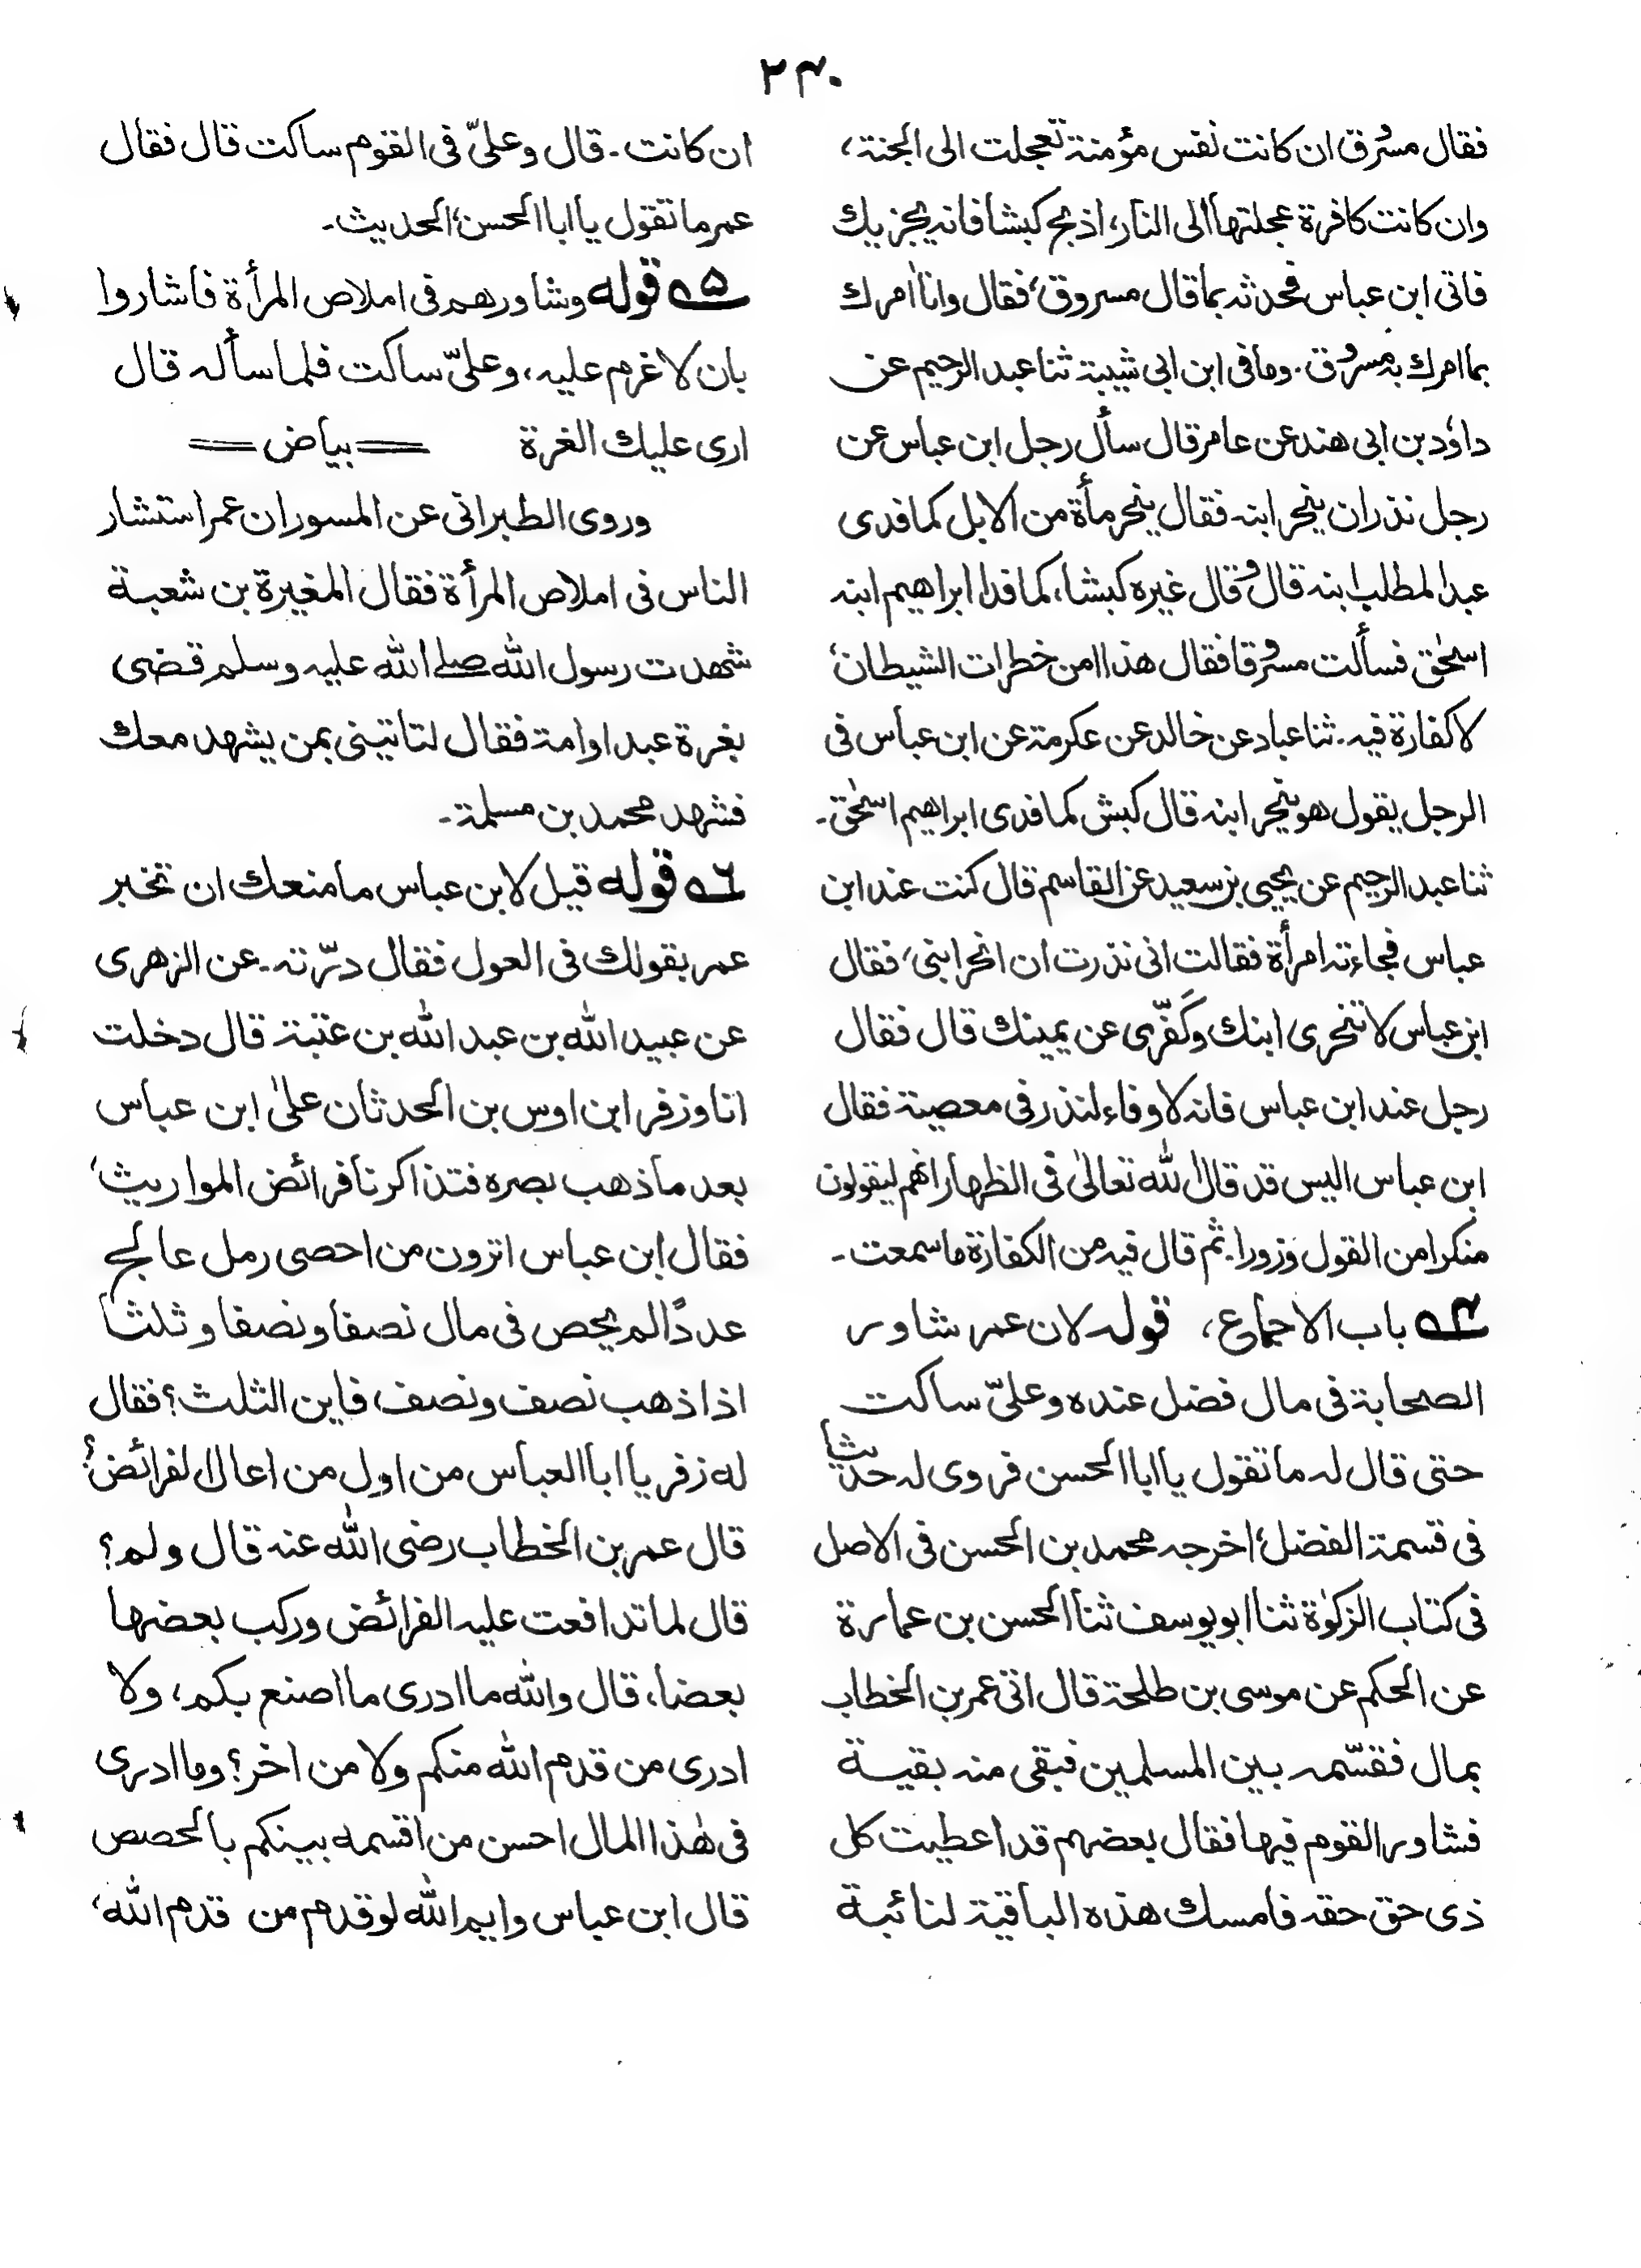 ۲۴۰
فقال مسروق ان كانت نفس مؤمنة تعجلت الى الجنة،
وان كانت كافرة عجلتها الى النار، اذبح كبشا فانه يجزيك
فاتى ابن عباس فحدثه بما قال مسروق، فقال وانا اٰمرك
بما امرك به مسروق. وما فى ابن ابى شيبة ثنا عبد الرحيم عن
داؤد بن ابى هند عن عامر قال سأل رجل ابن عباس عن
رجل نذر ان ينحر ابنه فقال ينحر مأة من الابل كما فدى
عبد المطلب ابنه قال وقال غيره كبشا، كما فدا ابراهيم ابنه
اسحٰق فسألت مسروقا فقال هذا امن خطرات الشيطان،
لا كفارة فيه. ثنا عباد عن خالد عن عكرمة عن ابن عباس فى
الرجل يقول هو ينحر ابنه قال كبش كما فدى ابراهيم اسحٰق۔
ثنا عبد الرحيم عن يحيى بن سعيد عن القاسم قال كنت عند ابن
عباس فجاءته امرأة فقالت انى نذرت ان انحر ابنى، فقال
ابن عباس لا تنحرى ابنك وكَفّرى عن يمينك قال فقال
رجل عند ابن عباس فانه لا وفاء لنذر فى معصية فقال
ابن عباس اليس قد قال الله تعالىٰ فى الظهار انهم ليقولون
منكرا من القول وزورا. ثم قال فيه من الكفارة ما سمعت۔
۵۴ باب الاجماع، قوله لان عمر شاور
الصحابة فى مال فضل عنده وعلىّ ساكت
حتى قال له ما تقول يا ابا الحسن فروى له حديثا
فى قسمة الفضل، اخرجه محمد بن الحسن فى الاصل
فى كتاب الزكوٰة ثنا ابو يوسف ثنا الحسن بن عمارة
عن الحكم عن موسى بن طلحة قال اتى عمر بن الخطاب
بمال فقسّمه بين المسلمين فبقى منه بقية
فشاور القوم فيها فقال بعضهم قد اعطيت كل
ذى حق حقه فامسك هذه الباقية لنائبة
ان كانت۔ قال وعلىّ فى القوم ساكت قال فقال
عمر ما تقول يا ابا الحسن، الحديث۔
۵۵ قوله وشاورهم فى املاص المرأة فاشاروا
بان لا غرم عليه، وعلىّ ساكت فلما سأله قال
ارى عليك الغرة == بياض ==
وروى الطبرانى عن المسور ان عمر استشار
الناس فى املاص المرأة فقال المغيرة بن شعبة
شهدت رسول الله صلے الله عليه وسلم قضى
بغرة عبد او امة فقال لتاتينى بمن يشهد معك
فشهد محمد بن مسلمة۔
۵۶ قوله قيل لابن عباس ما منعك ان تخبر
عمر بقولك فى العول فقال درّته۔ عن الزهرى
عن عبيد الله بن عبد الله بن عتبة قال دخلت
انا وزفر ابن اوس بن الحدثان علىٰ ابن عباس
بعد ما ذهب بصره فتذاكرنا فرائض المواريث،
فقال ابن عباس اترون من احصى رمل عالج
عددًا لم يحص فى مال نصفا ونصفا وثلثا
اذا ذهب نصف ونصف، فاين الثلث؟ فقال
له زفر يا ابا العباس من اول من اعال الفرائض؟
قال عمر بن الخطاب رضى الله عنه قال ولم؟
قال لما تدافعت عليه الفرائض وركب بعضها
بعضا، قال والله ما ادرى ما اصنع بكم، ولا
ادرى من قدم الله منكم ولا من اخر؟ وما ادرى
فى هٰذا المال احسن من اقسمه بينكم بالحصص
قال ابن عباس وايم الله لو قدم من قدم الله،